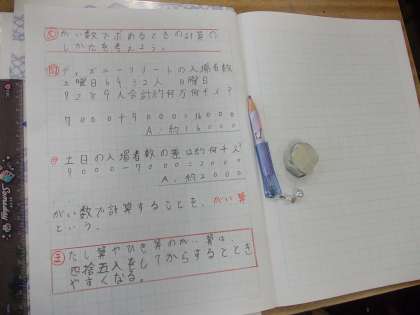 がい数で求めるときの計算の
しかたを考えよう。
ディズニーリゾートの入場者数
土曜日 人 日曜日
人合計約何万何千人?
7000+9000=16000
A.約16000
土日の入場者数の差は約何千人?
9000-7000=2000
A.約2000
がい数で計算することを、がい算
という。
たし算やひき算のがい算は、
四捨五入をしてからするととき
やすくなる。
Someday